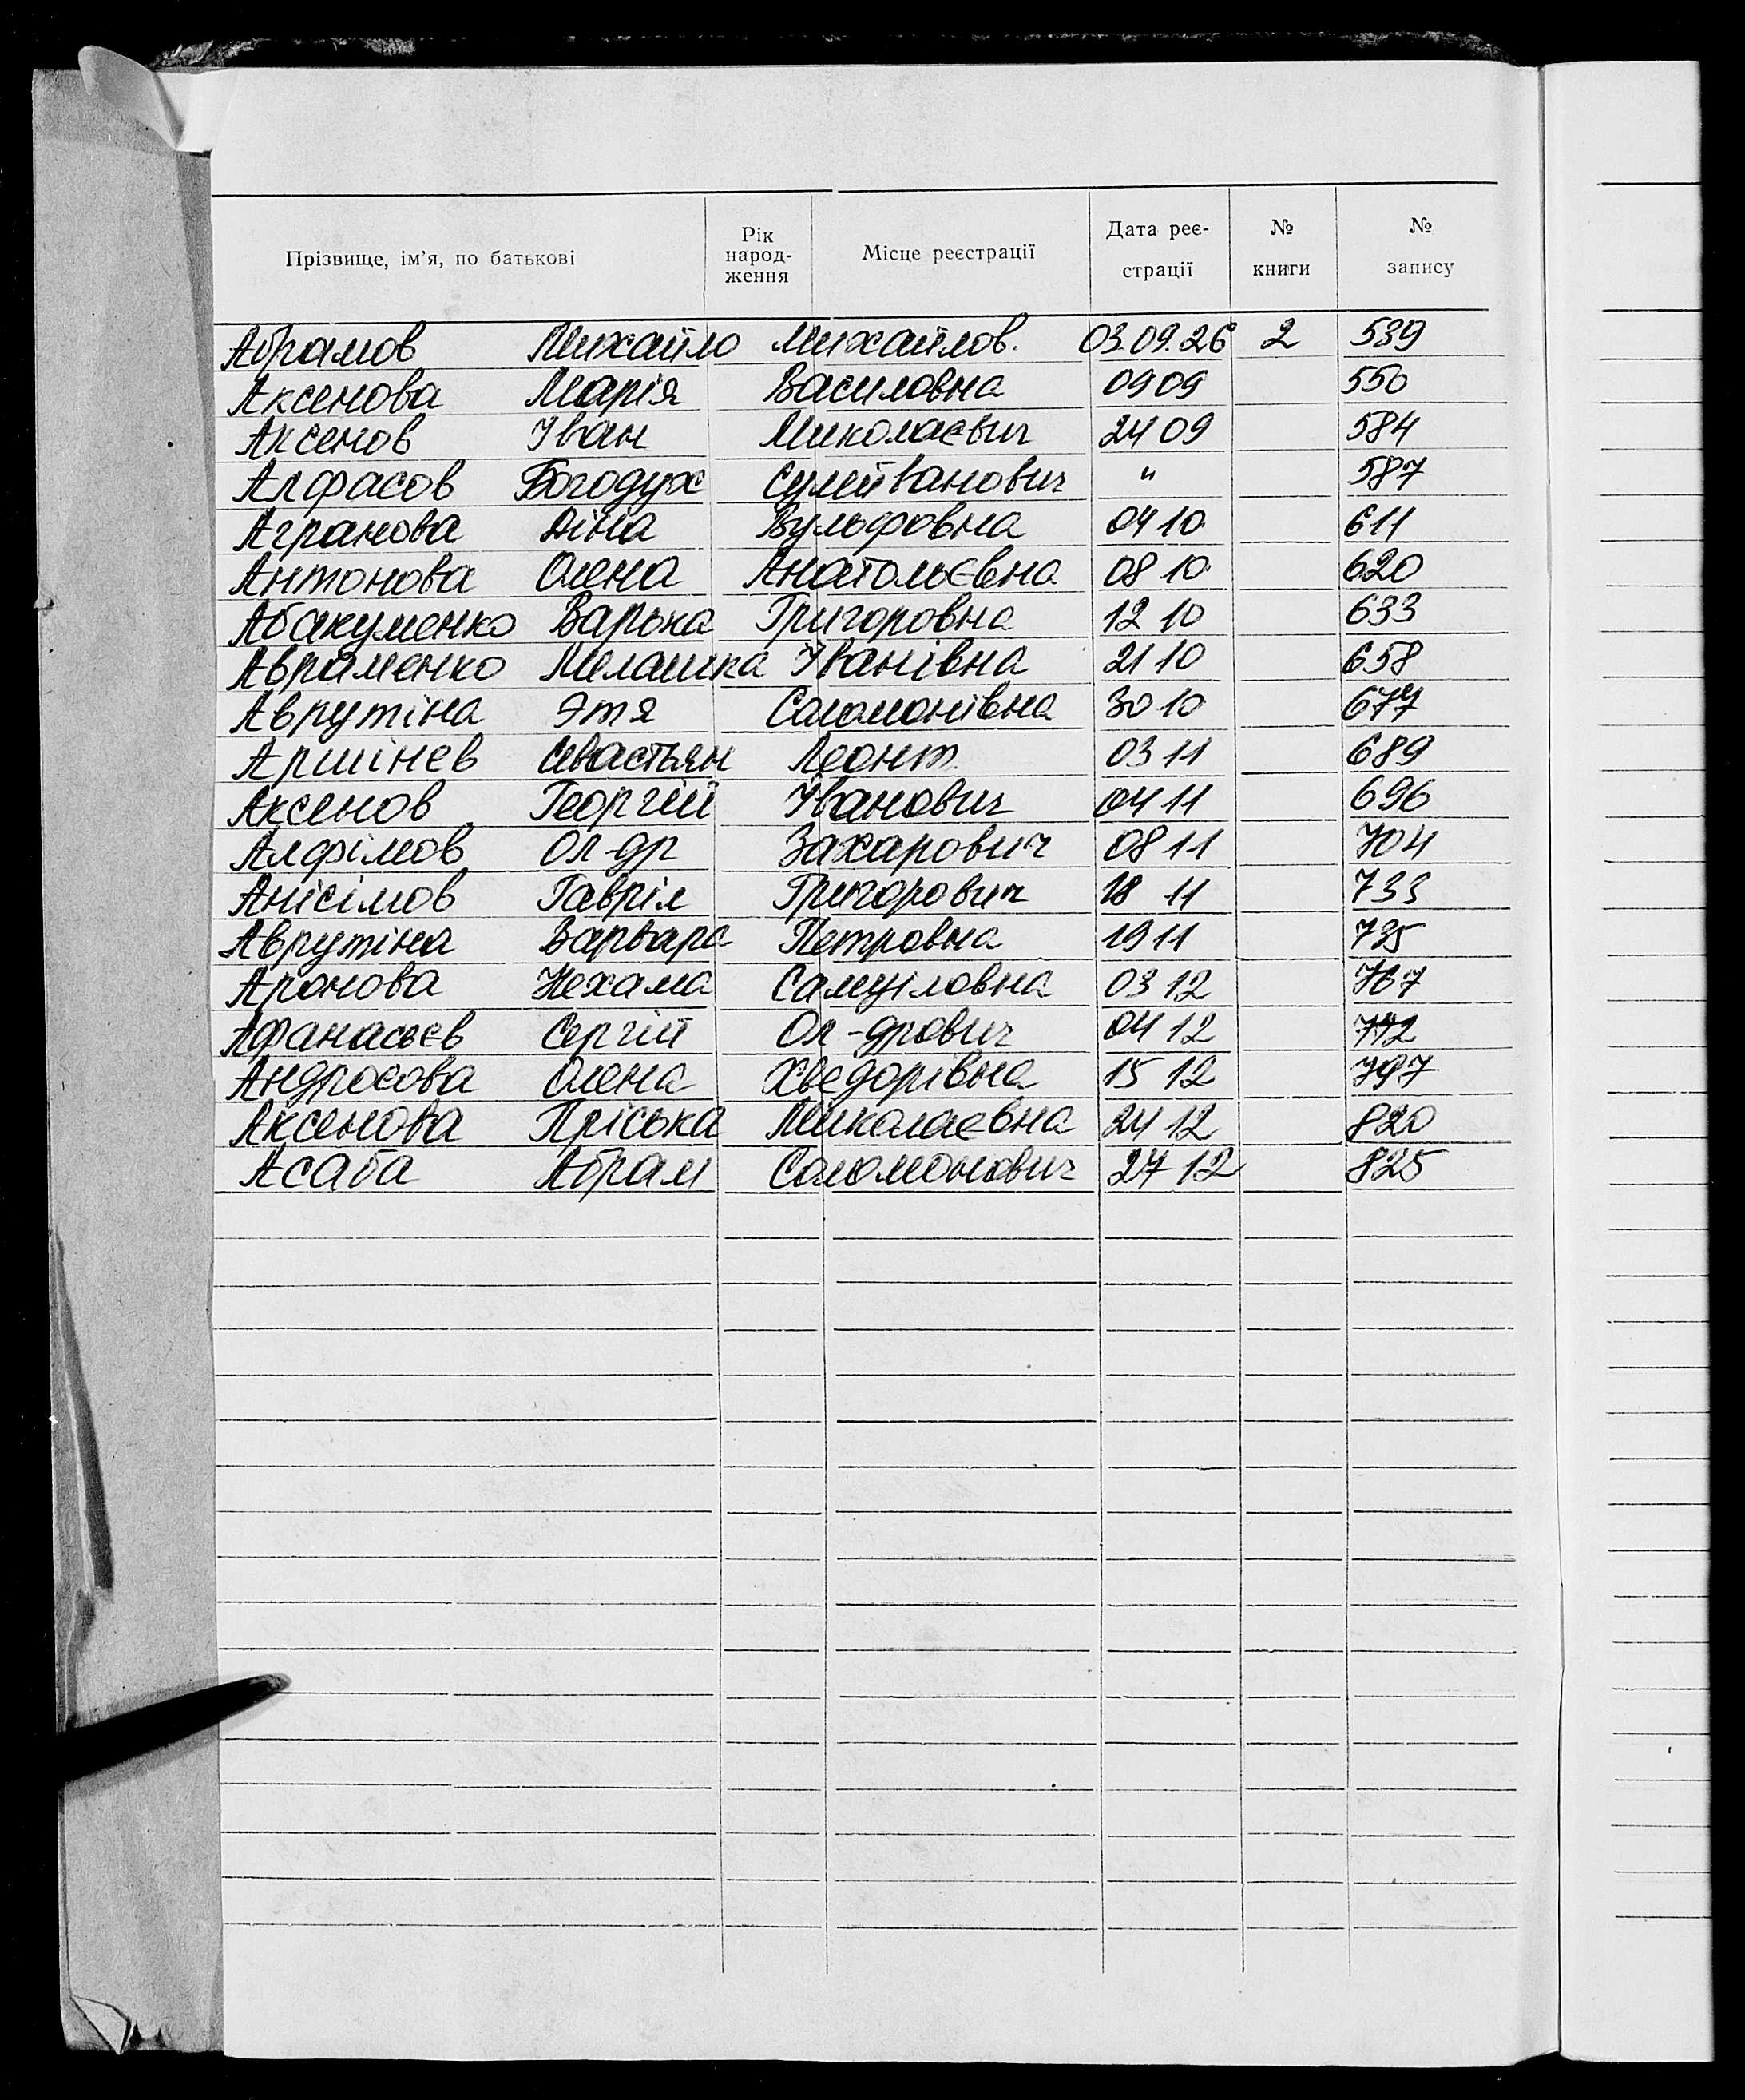 Прізвище, ім'я, по батькові Рік народ- ження Місце реєстрації Дата реє- страції № книги № запису
Абрамов Михайло Михайлов. 03.09.26 2 539
Аксенова Марія Василовна 09 09 550
Аксенов Іван Миколаєвич 24 09 584
Алфасов Богодух Сулейванович " 587
Агранова Діна Вульфовна 04 10 611
Антонова Олена Анатольєвна 08 10 620
Абакуменко Варька Григоровна 12 10 633
Авраменко Мелашка Іванівна 21 10 658
Аврутіна Этя Соломонівна 30 10 677
Аршінєв Севастьян Леонт. 03 11 689
Аксенов Георгій Іванович 04 11 696
Алфімов Ол-др Захарович 08 11 704
Анісімов Гавріл Григорович 18 11 733
Аврутіна Варвара Петровна 19 11 735
Аронова Нехама Самуіловна 03 12 767
Афанасьєв Сергій Ол-дрович 04 12 772
Андросова Олена Хведорівна 15 12 797
Аксенова Пріська Миколаєвна 24 12 820
Асаба Абрам Соломонович 27 12 825